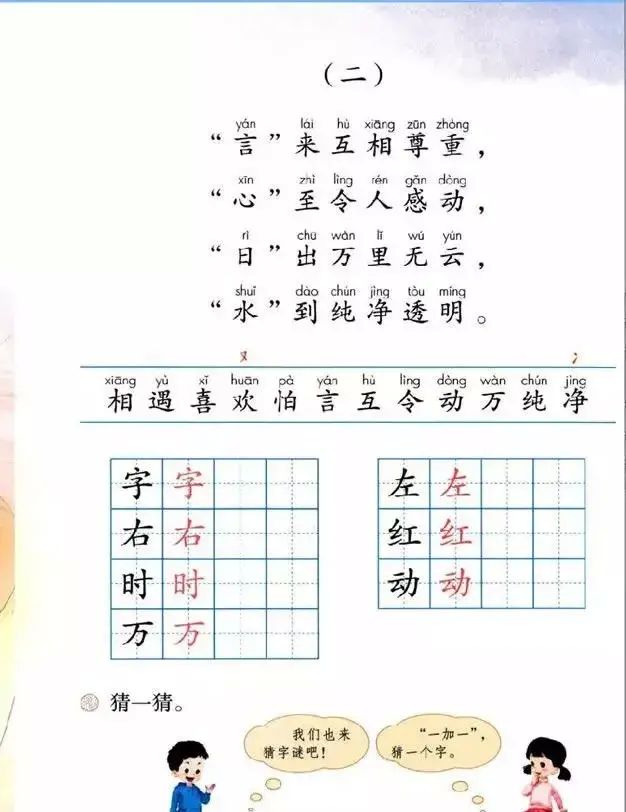 （二）
yán lái hù xiāng zūn zhòng
“言”来互相尊重，
xīn zhì lìng rén gǎn dòng
“心”至令人感动，
rì chū wàn lǐ wú yún
“日”出万里无云，
shuǐ dào chún jìng tòu míng
“水”到纯净透明。
又 冫
xiāng yù xǐ huān pà yán hù lìng dòng wàn chún jìng
相遇喜欢怕言互令动万纯净
字字 左左
右右 红红
时时 动动
万万
猜一猜。
我们也来
猜字谜吧！
“一加一”，
猜一个字。